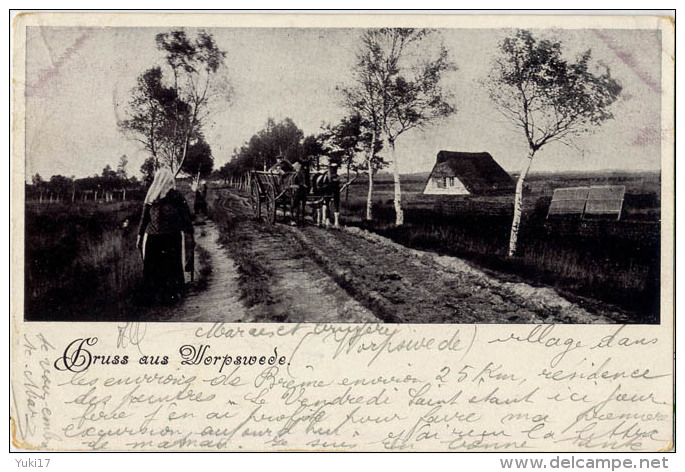 Gruss aus Worpswede.
(Worpswede) village dans
les environs de Brême environ 25 Km, résidence
des peintres. Le Vendredi Saint étant ici jour
férié j'en ai profité pour faire ma première
excursion aujourd'hui
de maman. Je suis en bonne
Yuki17
http://www.delcampe.net